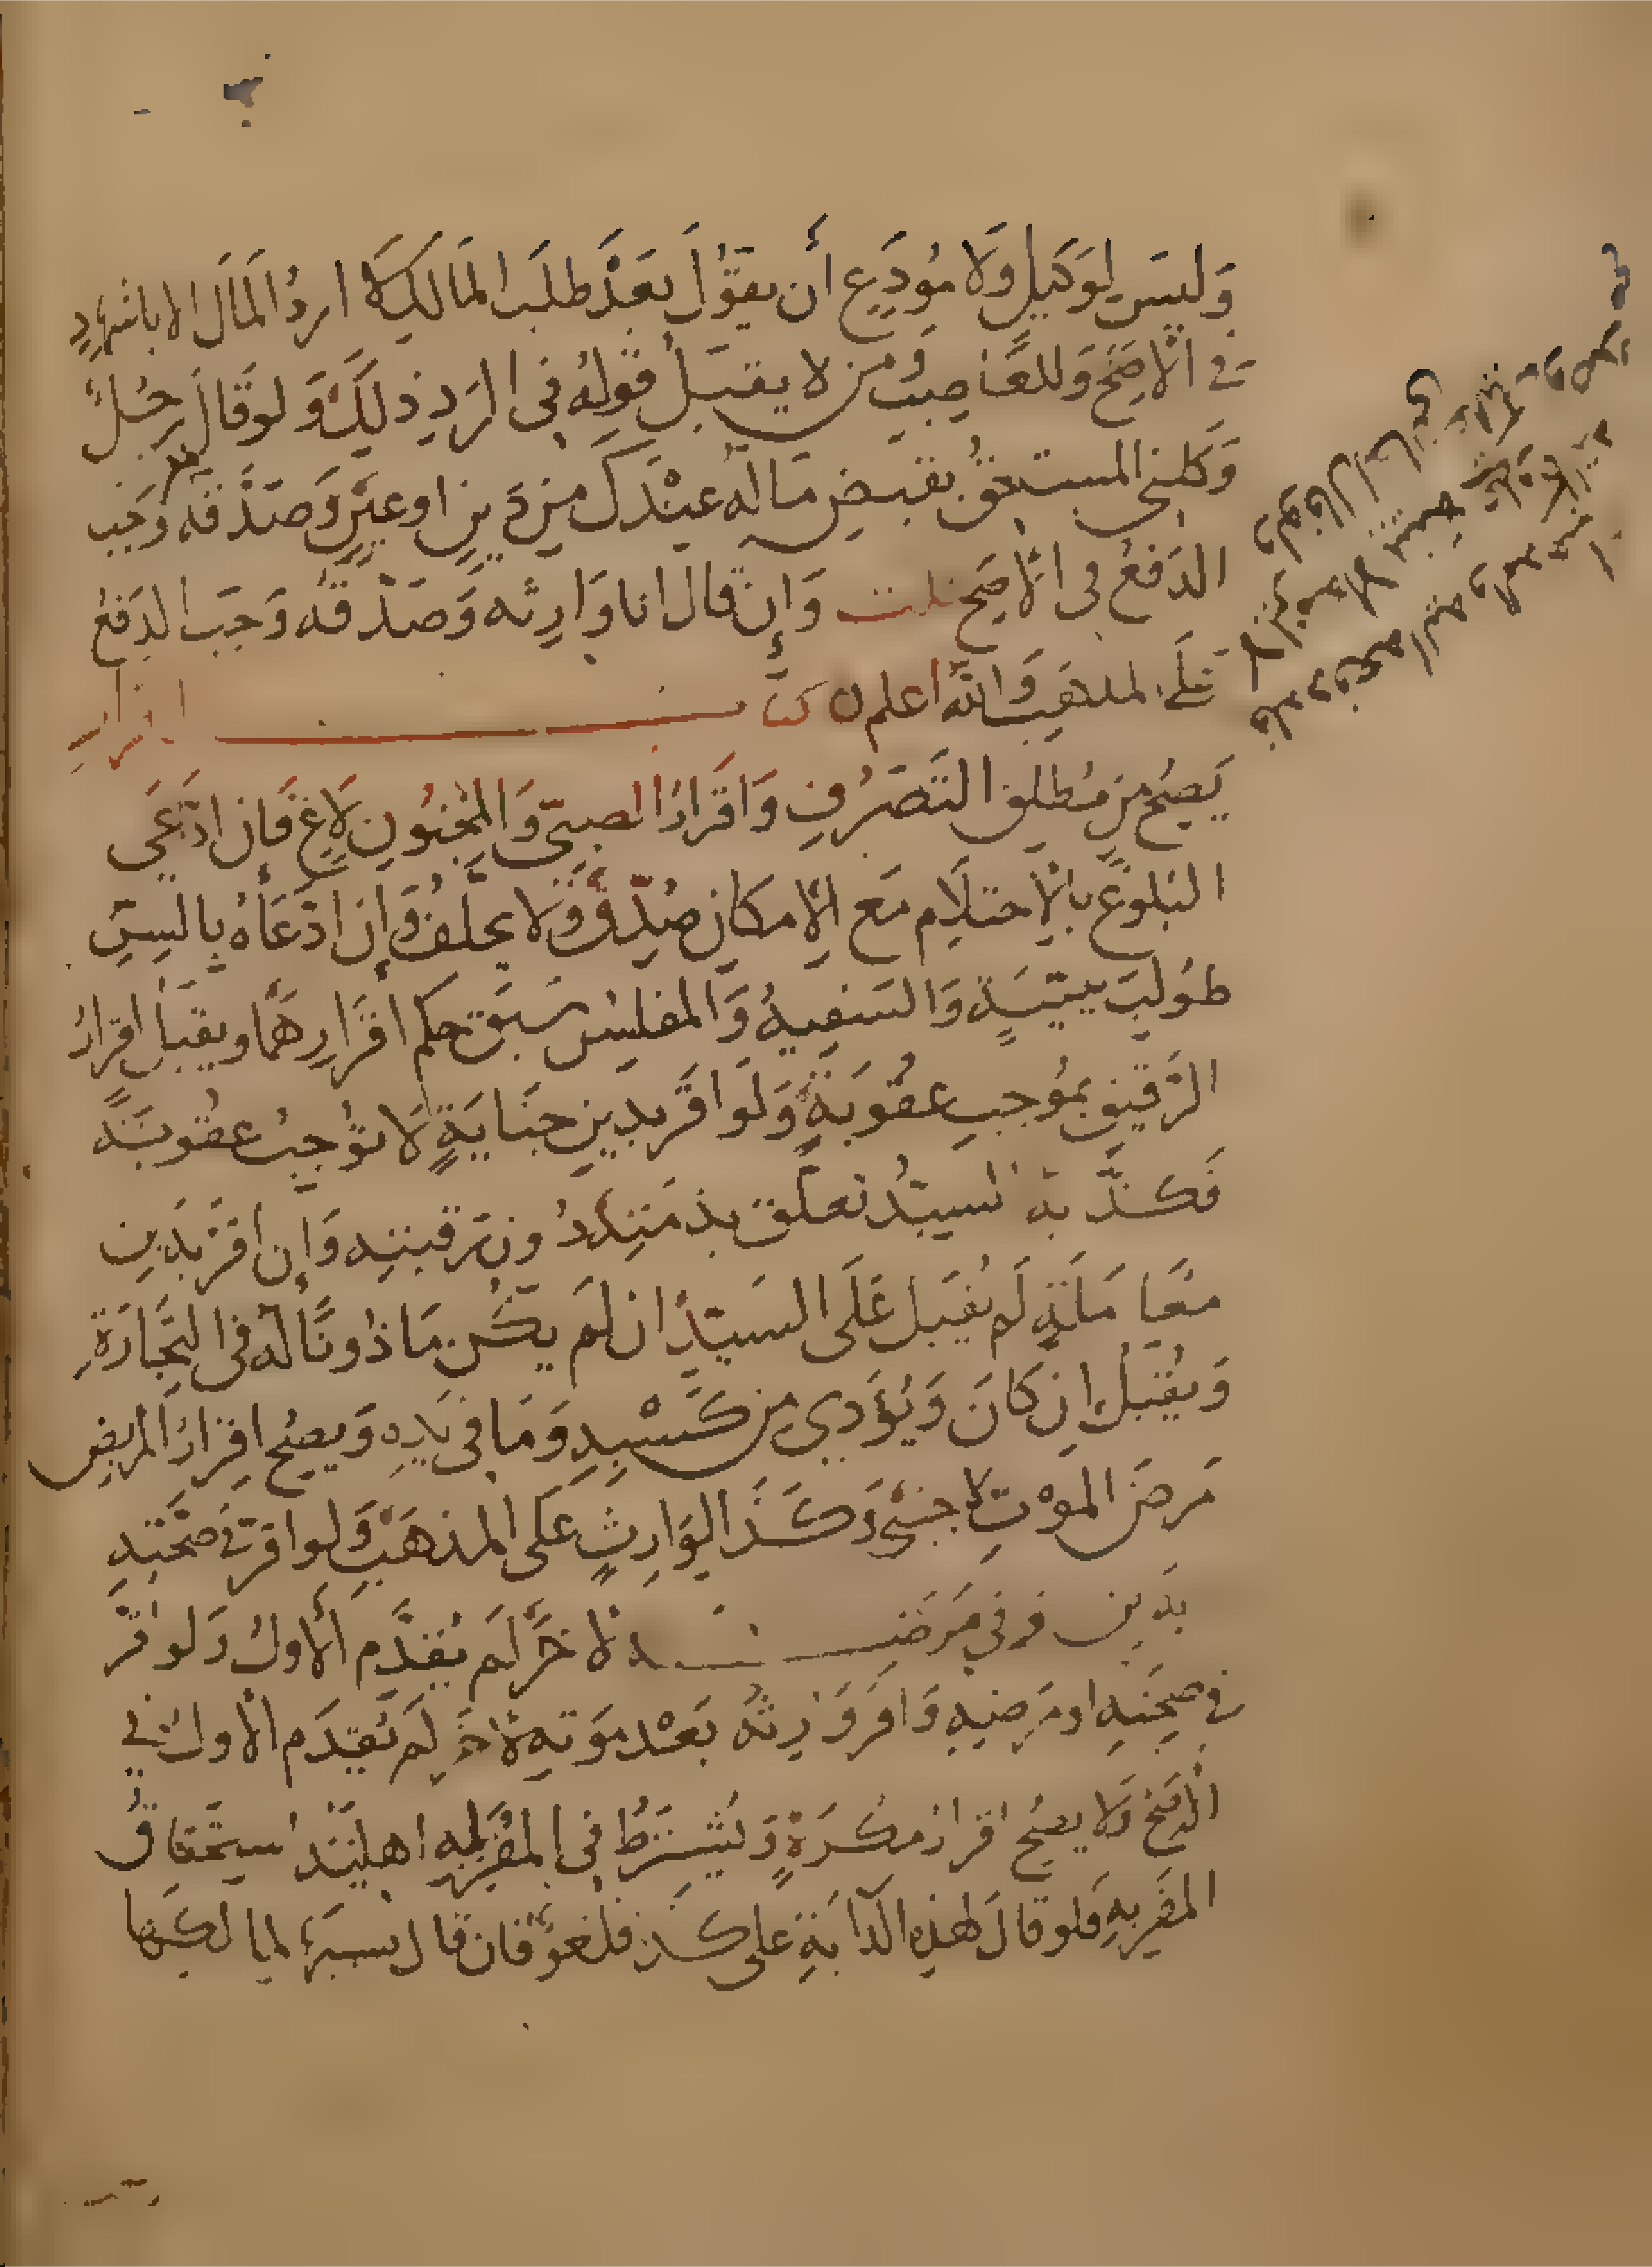 وَلَيسَ لوَكيلٍ وَلَا مُودَعٍ أن يقوُلَ بَعْدَ طلَب المَالكِ لا اردُ المَالَ الا باشهادٍ
في الأصَحِّ وَللغَاصِبِ وَمن لا يقبَلُ قولهُ في الرَدِ ذلِكَ وَلو قَالَ رجُلٌ
وَكلني المستحقُ بقبضِ مَا لهُ عِنْدَكَ من دَينٍ او عينٍ وَصَدَّقَه وَجب
الدَفعُ في الأصَحِّ قلت وَإن قال انا وَارِثه وَصَدَّقَه وَجَبَ الدَفعُ
عَلَى المذهَبِ وَاللهُ اعلم كتاب الاقرار
يَصحُ من مُطلَقِ التَصَرُفِ وَاقرَارُ الصبيّ وَالمَجنُونِ لَاغٍ فَإن ادَّعَى
البُلوغَ بالاحتلَامِ مَعَ الإمكَانِ صُدِّقَ وَلا يحلَفُ وَإن ادَّعَاهُ بالسِنِّ
طُولبَ ببيّنَةٍ وَالسَفِيهُ وَالمفلِسُ سَبَقَ حكم اقرَارِهمَا ويقبَل اقرارُ
الرَّقيقِ بمُوجبِ عقُوبَةٍ وَلَو اقَرَ بدينِ جنَايَةٍ لَا تُوجبُ عقُوبَةً
فَكذَّبهُ السيّدُ تعلّق بذمّتِه دُونَ رقبتِه وَإن اقَرَ بدَينِ
معَامَلَةٍ لَم يُقبَل عَلَى السَيّدِ ان لَم يكُن مَاذُونًا له في التِجَارَةِ
وَيُقبَلُ ان كَانَ وَيُؤَدي من كَسْبِهِ وَمَا في يَدِهِ وَيصحُ اقرَارُ المريضِ
مَرضَ الموْتِ لأجنبيٍ وَكَذَا لوَارِثٍ عَلَى المذهَبِ وَلو اقر في صحّتِهِ
بدَينٍ وفي مَرَضِه لآخَرَ لَم يُقدَّم الأولُ وَلو اقر
في صِحَتِهِ او مَرَضِهِ وَاقَرَ وَارِثُهُ بَعْد مَوتِهِ لآخَرَ لَم يُقدَم الأولُ في
الأصَحِّ وَلَا يصحُ اقرارُ مكُرَهٍ وَيُشترَطُ في المُقَرِ لَهِ اهليّةُ استحقَاقُ
المقَرِ بهِ فَلو قالَ لهذِهِ الدَابَةِ عَلي كَذا فلغوٌ فان قال بسبَبِهَا لمالكها